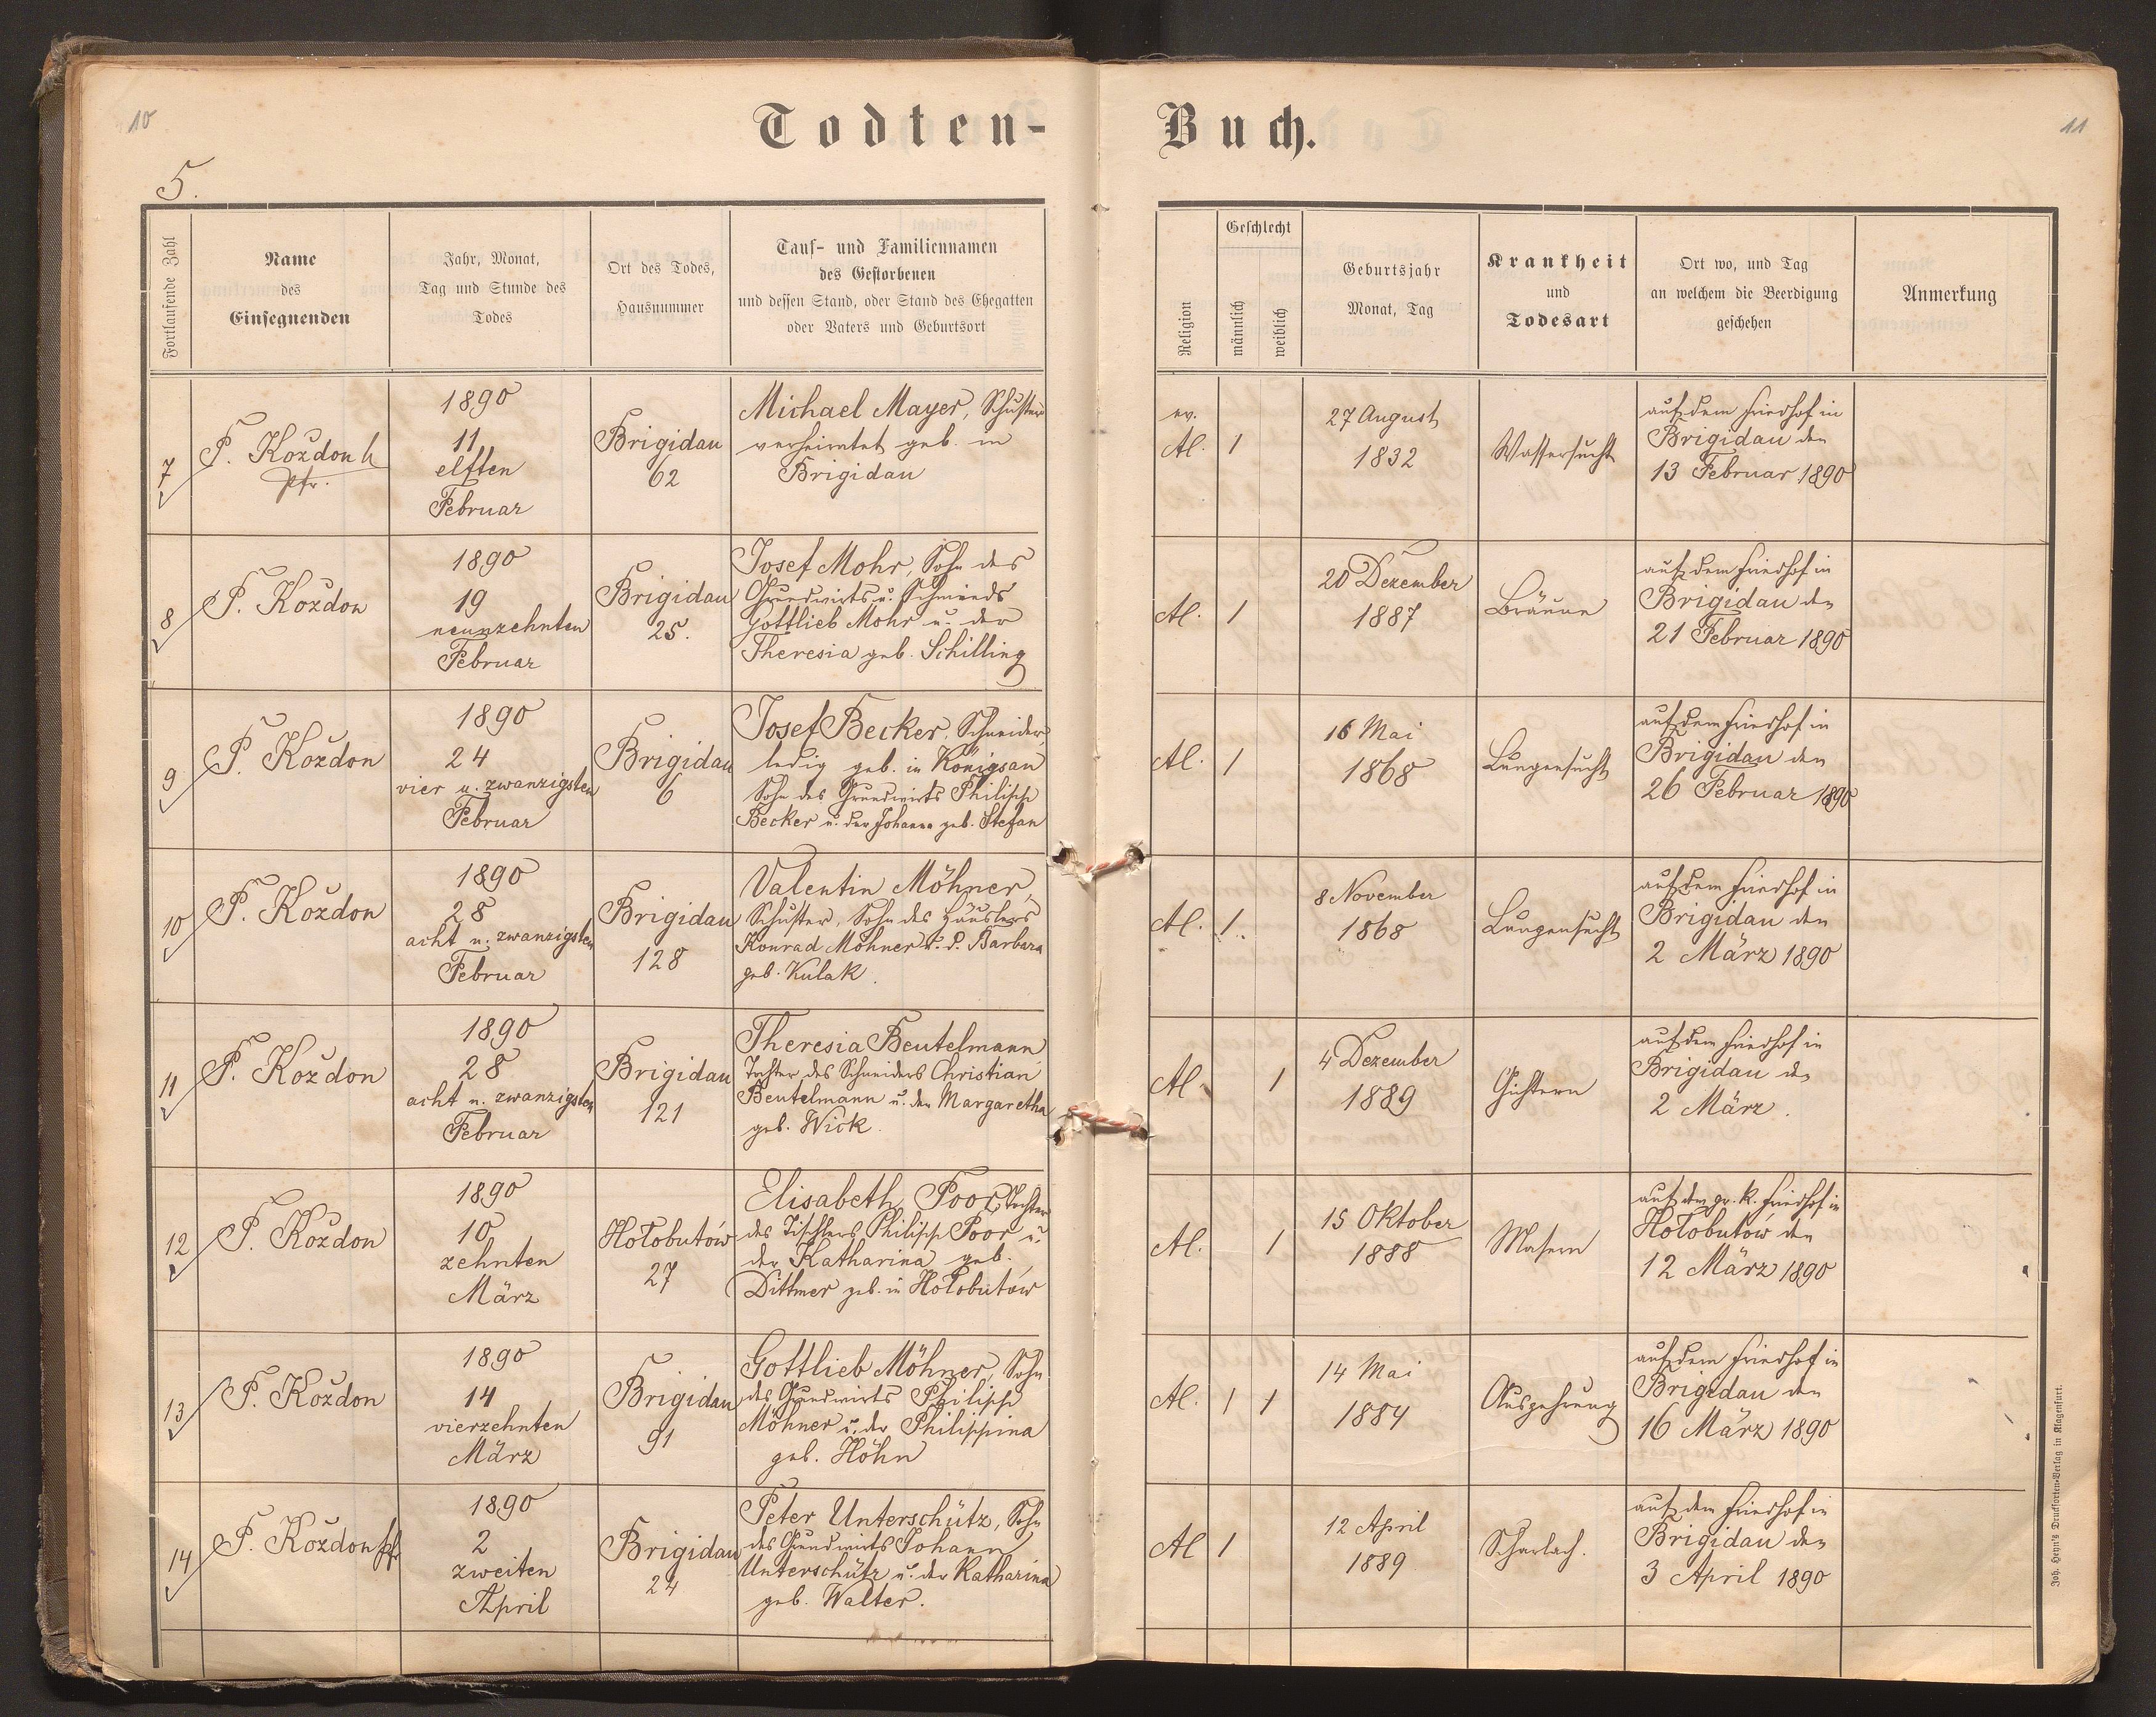 10
11
Todten-Buch.
5.
Fortlaufende Zahl
Name
des
Einsegnenden
Jahr, Monat,
Tag und Stunde des
Todes
Ort des Todes,
und
Hausnummer
Tauf- und Familiennamen
des Gestorbenen
und dessen Stand, oder Stand des Ehegatten
oder Vaters und Geburtsort
Religion
Geschlecht
männlich
weiblich
Geburtsjahr
Monat, Tag
Krankheit
und
Todesart
Ort wo, und Tag
an welchem die Beerdigung
geschehen
Anmerkung
7
F. Koždon
Pfr.
1890
11
elften
Februar
Brigidau
62
Michael Mayer, Schuster
verheiratet geb. in
Brigidau
ev.
Al.
1
27 August
1832
Wassersucht
auf dem Friedhof in
Brigidau den
13 Februar 1890
8
F. Koždon
1890
19
neunzehnten
Februar
Brigidau
25.
Josef Mohr, Sohn des
Grundwirts u. Schmieds
Gottlieb Mohr u. der
Theresia geb. Schilling
Al.
1
20 Dezember
1887
Bräune
auf dem Friedhof in
Brigidau den
21 Februar 1890
9
F. Koždon
1890
24
vier u. zwanzigsten
Februar
Brigidau
6
Josef Becker, Schneider,
ledig geb. in Königsau
Sohn des Grundwirts Philipp
Becker u. der Johanna geb. Stefan
Al.
1
16 Mai
1868
Lungensucht
auf dem Friedhof in
Brigidau den
26 Februar 1890
10
F. Koždon
1890
28
acht u. zwanzigsten
Februar
Brigidau
128
Valentin Möhner,
Schuster, Sohn des Häuslers
Konrad Möhner u. d. Barbara
geb. Kulak.
Al.
1
8 November
1868
Lungensucht
auf dem Friedhof in
Brigidau den
2 März 1890
11
F. Koždon
1890
28
acht u. zwanzigsten
Februar
Brigidau
121
Theresia Beutelmann
Tochter des Schneiders Christian
Beutelmann u. der Margaretha
geb. Wick.
Al.
1
4 Dezember
1889
Gichtern
auf dem Friedhof in
Brigidau den
2 März.
12
F. Koždon
1890
10
zehnten
März
Hołobutów
27
Elisabeth Poor, Tochter
des Tischlers Philipp Poor u.
der Katharina geb.
Dittmer geb. in Hołobutów
Al.
1
15 Oktober
1888
Masern
auf dem gr. k. Friedhof in
Hołobutów den
12 März 1890
13
F. Koždon
1890
14
vierzehnten
März
Brigidau
91
Gottlieb Möhner, Sohn
des Grundwirts Philipp
Möhner u. der Philippina
geb. Höhn
Al.
1
1
14 Mai
1884
Auszehrung
auf dem Friedhof in
Brigidau den
16 März 1890
14
F. Koždon Pfr
1890
2
zweiten
April
Brigidau
24
Peter Unterschütz, Sohn
des Grundwirts Johann
Unterschütz u. der Katharina
geb. Walter.
Al
1
12 April
1889
Scharlach.
auf dem Friedhof in
Brigidau den
3 April 1890
Joh. Heyn's Drucksorten-Verlag in Klagenfurt.